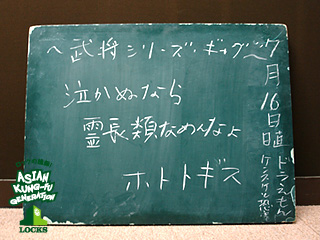 〜武将シリーズ・ギャグ〜
泣かぬなら
霊長類なめんなよ
ホトトギス
7月16日
日直 ドラえもん
ASIAN
KUNG-FU
GENERATION
LOCKS